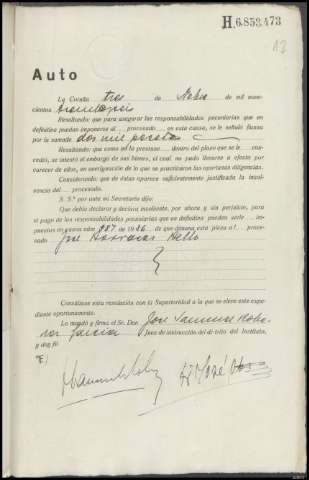 H.6.853.473
Auto
La Coruña tres de de mil nove-
cientos treintaseis
Resultando: que para asegurar las responsabilidades pecuniarias que en
definitiva puedan imponerse al procesado en esta causa, se le señaló fianza
por la suma de dos mil pesetas
Resultando: que como no la prestase dentro del plazo que se le
cedió, se intentó el embargo de sus bienes, el cual no pudo llevarse a efecto por
carecer de ellos, en averiguación de lo que se practicaron las oportunas diligencias.
Considerando: que de éstas aparece suficientemente justificada la insol-
vencia del procesado.
S. S.ª por ante mi Secretario dijo:
Que debía declarar y declara insolvente, por ahora y sin perjuicio, para
el pago de las responsabilidades pecuniarias que en definitiva puedan serle im-
puestas en causa núm. 987 de 1936 de que dimana esta pieza al pro-
cesado José Bello
Consúltese esta resolución con la Superioridad a la que se eleve este expe-
diente oportunamente.
Lo mandó y firma el Sr. Don José
García Juez de instrucción del distrito del Instituto,
y doy fé.
José